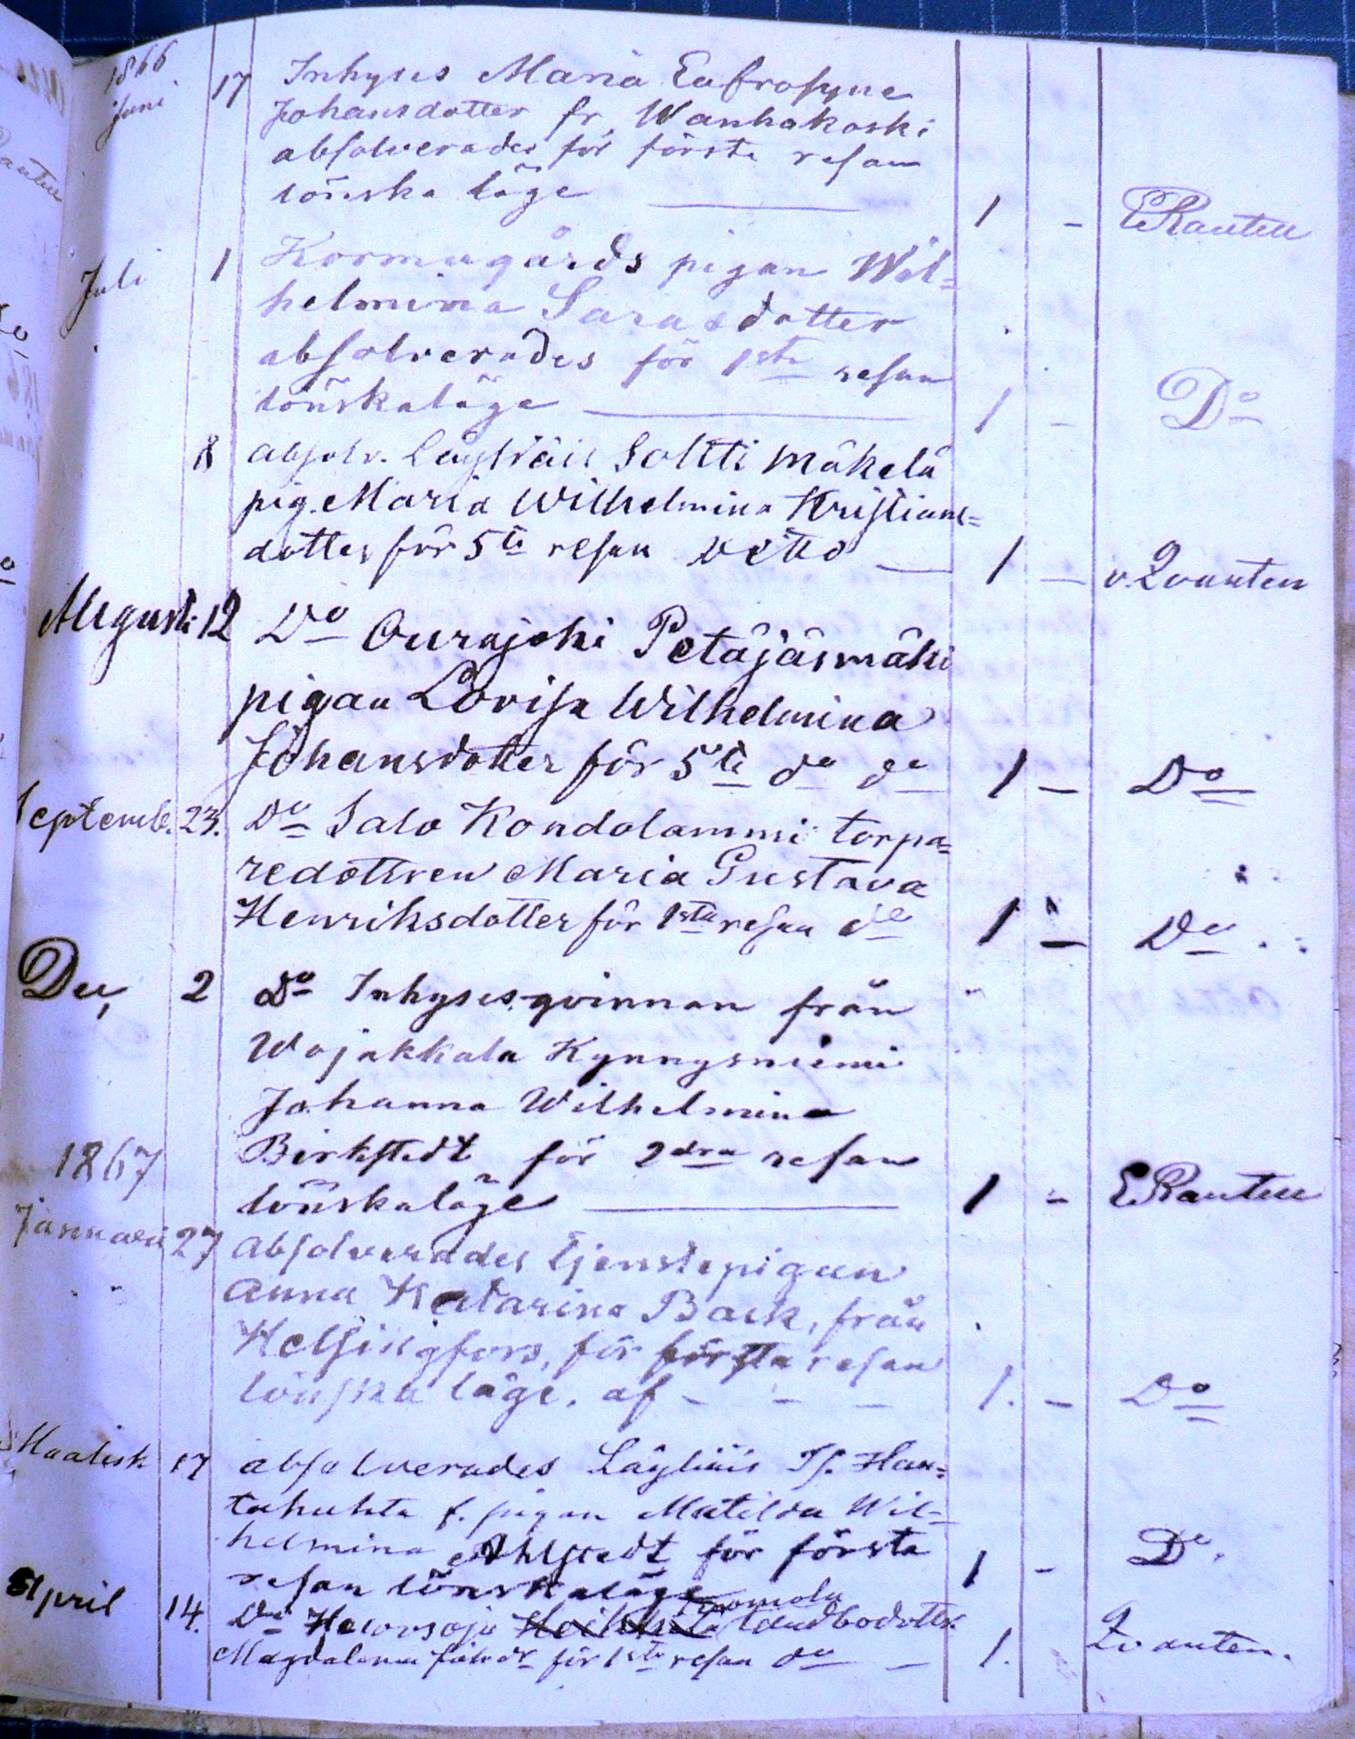 1866
Juni 17 Inhyses Maria Eufrosyne
Johansdotter fr. Wanhakoski
absolverades för första resan
lönska läge 1 - E Rautell
Juli 1 Kormugårds pigan Wil=
helmina Sara dotter
absolverades för 1sta resan
lönskaläge 1 - Do
8 absolv. Läyliäis Soltti Mäkelä
pig. Maria Wilhelmina Kristians=
dotter för 5te resan ditto 1 -
Augusti 12 Do Ourajoki Petäjäsmäki
pigan Lovisa Wilhelmina
Johansdotter för 5te do do 1 - Do
Septemb. 23. Do Salo Kondolammi torpa=
redottren Maria Gustava
Henriksdotter för 1sta resan do 1 - Do
Dec, 2 Do Inhyses qvinnan från
Wojakkala Kynnysniemi
Johanna Wilhelmina
Birkstedt för 2dra resan
1867 lönskaläge 1 - E Rautell
Januari 27 absolverades tjenstepigan
Anna Katarina Back, från
Helsingfors, för första resan
lönska läge. af - - - 1. - Do
Maalisk 17 absolverades Läyliäis Is. Hau=
tahuhta f. pigan Matilda Wil=
helmina Ahlstedt för första 1 - Do.
resan lönskaläge
April 14. Do landbodotter
Magdalena för 1sta resan do - 1.